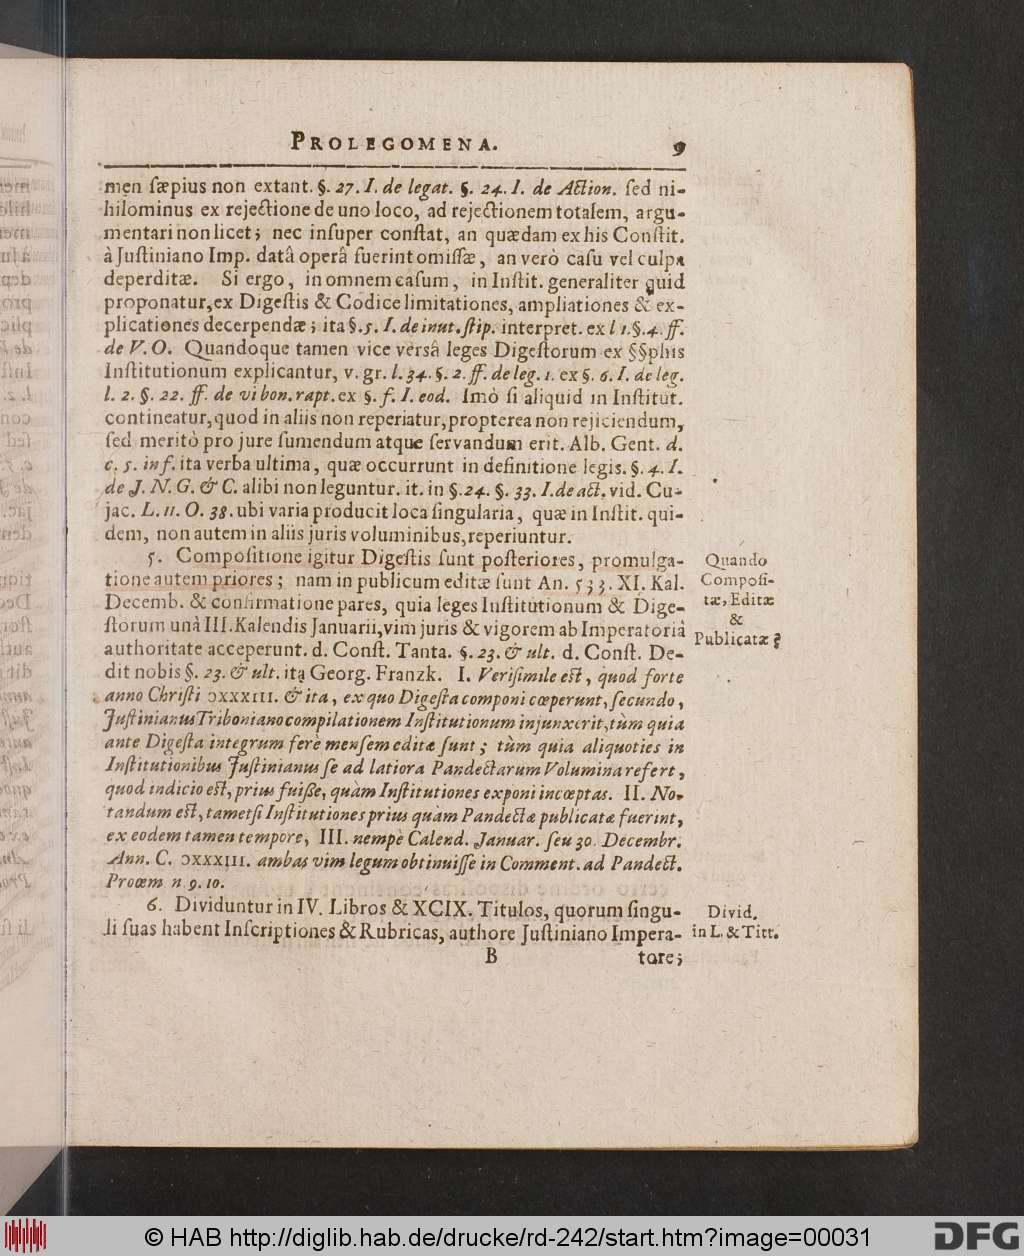 PROLEGOMENA. 9
men sæpius non extant. §. 27. I. de legat. §. 24. I. de Action. sed ni-
hilominus ex rejectione de uno loco, ad rejectionem totalem, argu-
mentari non licet; nec insuper constat, an quædam ex his Constit.
à Justiniano Imp. datâ operâ fuerint omissæ, an verò casu vel culpa
deperditæ. Si ergo, in omnem casum, in Instit. generaliter quid
proponatur, ex Digestis & Codice limitationes, ampliationes & ex-
plicationes decerpendæ; ita §. 5. I. de inut. stip. interpret. ex l 1. §. 4. ff.
de V. O. Quandoque tamen vice versâ leges Digestorum ex §§phis
Institutionum explicantur, v. gr. l. 34. §. 2. ff. de leg. 1. ex §. 6. I. de leg.
l. 2. §. 22. ff. de vi bon. rapt. ex §. f. I. eod. Imò si aliquid in Institut.
contineatur, quod in aliis non reperiatur, propterea non rejiciendum,
sed meritò pro jure sumendum atque servandum erit. Alb. Gent. d.
c. 5. in f. ita verba ultima, quæ occurrunt in definitione legis. §. 4. I.
de J. N. G. & C. alibi non leguntur. it. in §. 24. §. 33. I. de act. vid. Cu-
jac. L. 11. O. 38. ubi varia producit loca singularia, quæ in Instit. qui-
dem, non autem in aliis juris voluminibus, reperiuntur.
5. Compositione igitur Digestis sunt posteriores, promulga-
tione autem priores; nam in publicum editæ sunt An. 533. XI. Kal.
Decemb. & confirmatione pares, quia leges Institutionum & Dige-
storum unà III. Kalendis Januarii, vim juris & vigorem ab Imperatoriâ
authoritate acceperunt. d. Const. Tanta. §. 23. & ult. d. Const. De-
dit nobis §. 23. & ult. ita Georg. Franzk. I. Verisimile est, quod forte
anno Christi ↄxxxiii. & ita, ex quo Digesta componi cœperunt, secundo,
Justinianus Triboniano compilationem Institutionum injunxerit, tùm quia
ante Digesta integrum ferè mensem editæ sunt; tùm quia aliquoties in
Institutionibus Justinianus se ad latiora Pandectarum Volumina refert,
quod indicio est, prius fuisse, quàm Institutiones exponi incœptas. II. No-
tandum est, tametsi Institutiones prius quàm Pandectæ publicatæ fuerint,
ex eodem tamen tempore, III. nempè Calend. Januar. seu 30. Decembr.
Ann. C. ↄxxxiii. ambas vim legum obtinuisse in Comment. ad Pandect.
Proœm n. 9. 10.
6. Dividuntur in IV. Libros & XCIX. Titulos, quorum singu-
li suas habent Inscriptiones & Rubricas, authore Justiniano Impera-
B tore;
Quando
Composi-
tæ, Editæ
&
Publicatæ?
Divid.
in L. & Titt.
© HAB http://diglib.hab.de/drucke/rd-242/start.htm?image=00031
DFG